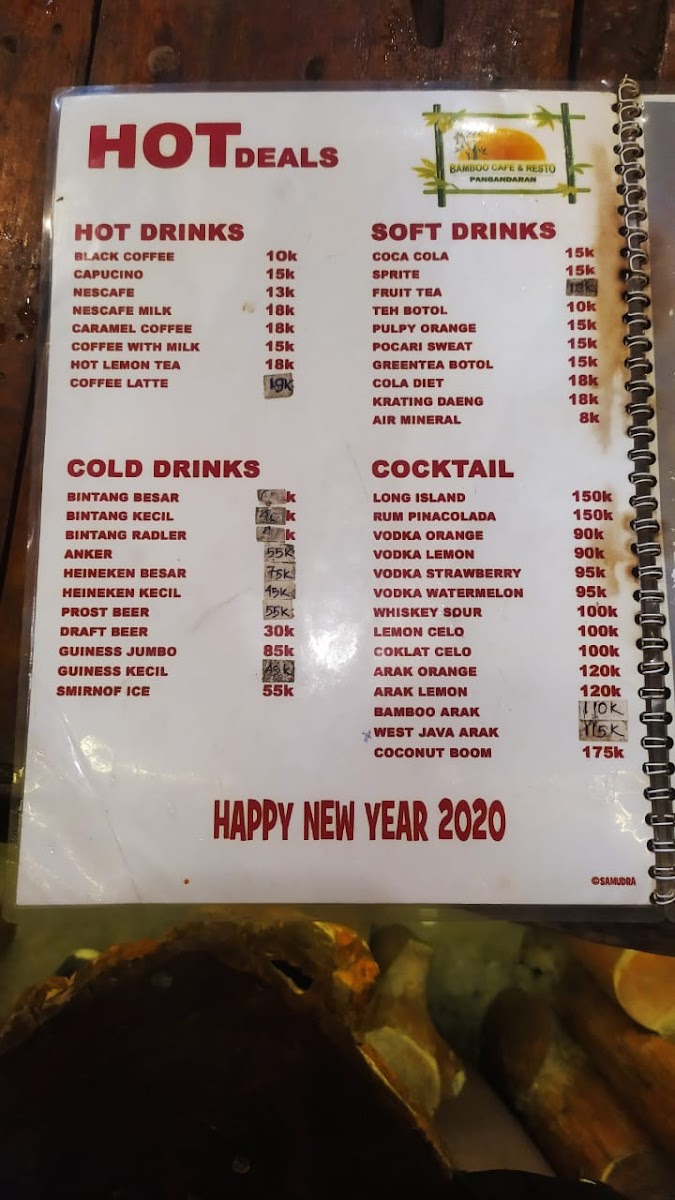 HOT DEALS
BAMBOO CAFE & RESTO
PANGANDARAN
HOT DRINKS
BLACK COFFEE 10k
CAPUCINO 15k
NESCAFE 13k
NESCAFE MILK 18k
CARAMEL COFFEE 18k
COFFEE WITH MILK 15k
HOT LEMON TEA 18k
COFFEE LATTE 19K
SOFT DRINKS
COCA COLA 15k
SPRITE 15k
FRUIT TEA
TEH BOTOL 10k
PULPY ORANGE 15k
POCARI SWEAT 15k
GREENTEA BOTOL 15k
COLA DIET 18k
KRATING DAENG 18k
AIR MINERAL 8k
COLD DRINKS
BINTANG BESAR k
BINTANG KECIL k
BINTANG RADLER k
ANKER 55K
HEINEKEN BESAR 75K
HEINEKEN KECIL 45K
PROST BEER 55K
DRAFT BEER 30k
GUINESS JUMBO 85k
GUINESS KECIL 45K
SMIRNOF ICE 55k
COCKTAIL
LONG ISLAND 150k
RUM PINACOLADA 150k
VODKA ORANGE 90k
VODKA LEMON 90k
VODKA STRAWBERRY 95k
VODKA WATERMELON 95k
WHISKEY SOUR 100k
LEMON CELO 100k
COKLAT CELO 100k
ARAK ORANGE 120k
ARAK LEMON 120k
BAMBOO ARAK 110K
WEST JAVA ARAK 115K
COCONUT BOOM 175k
HAPPY NEW YEAR 2020
©SAMUDRA